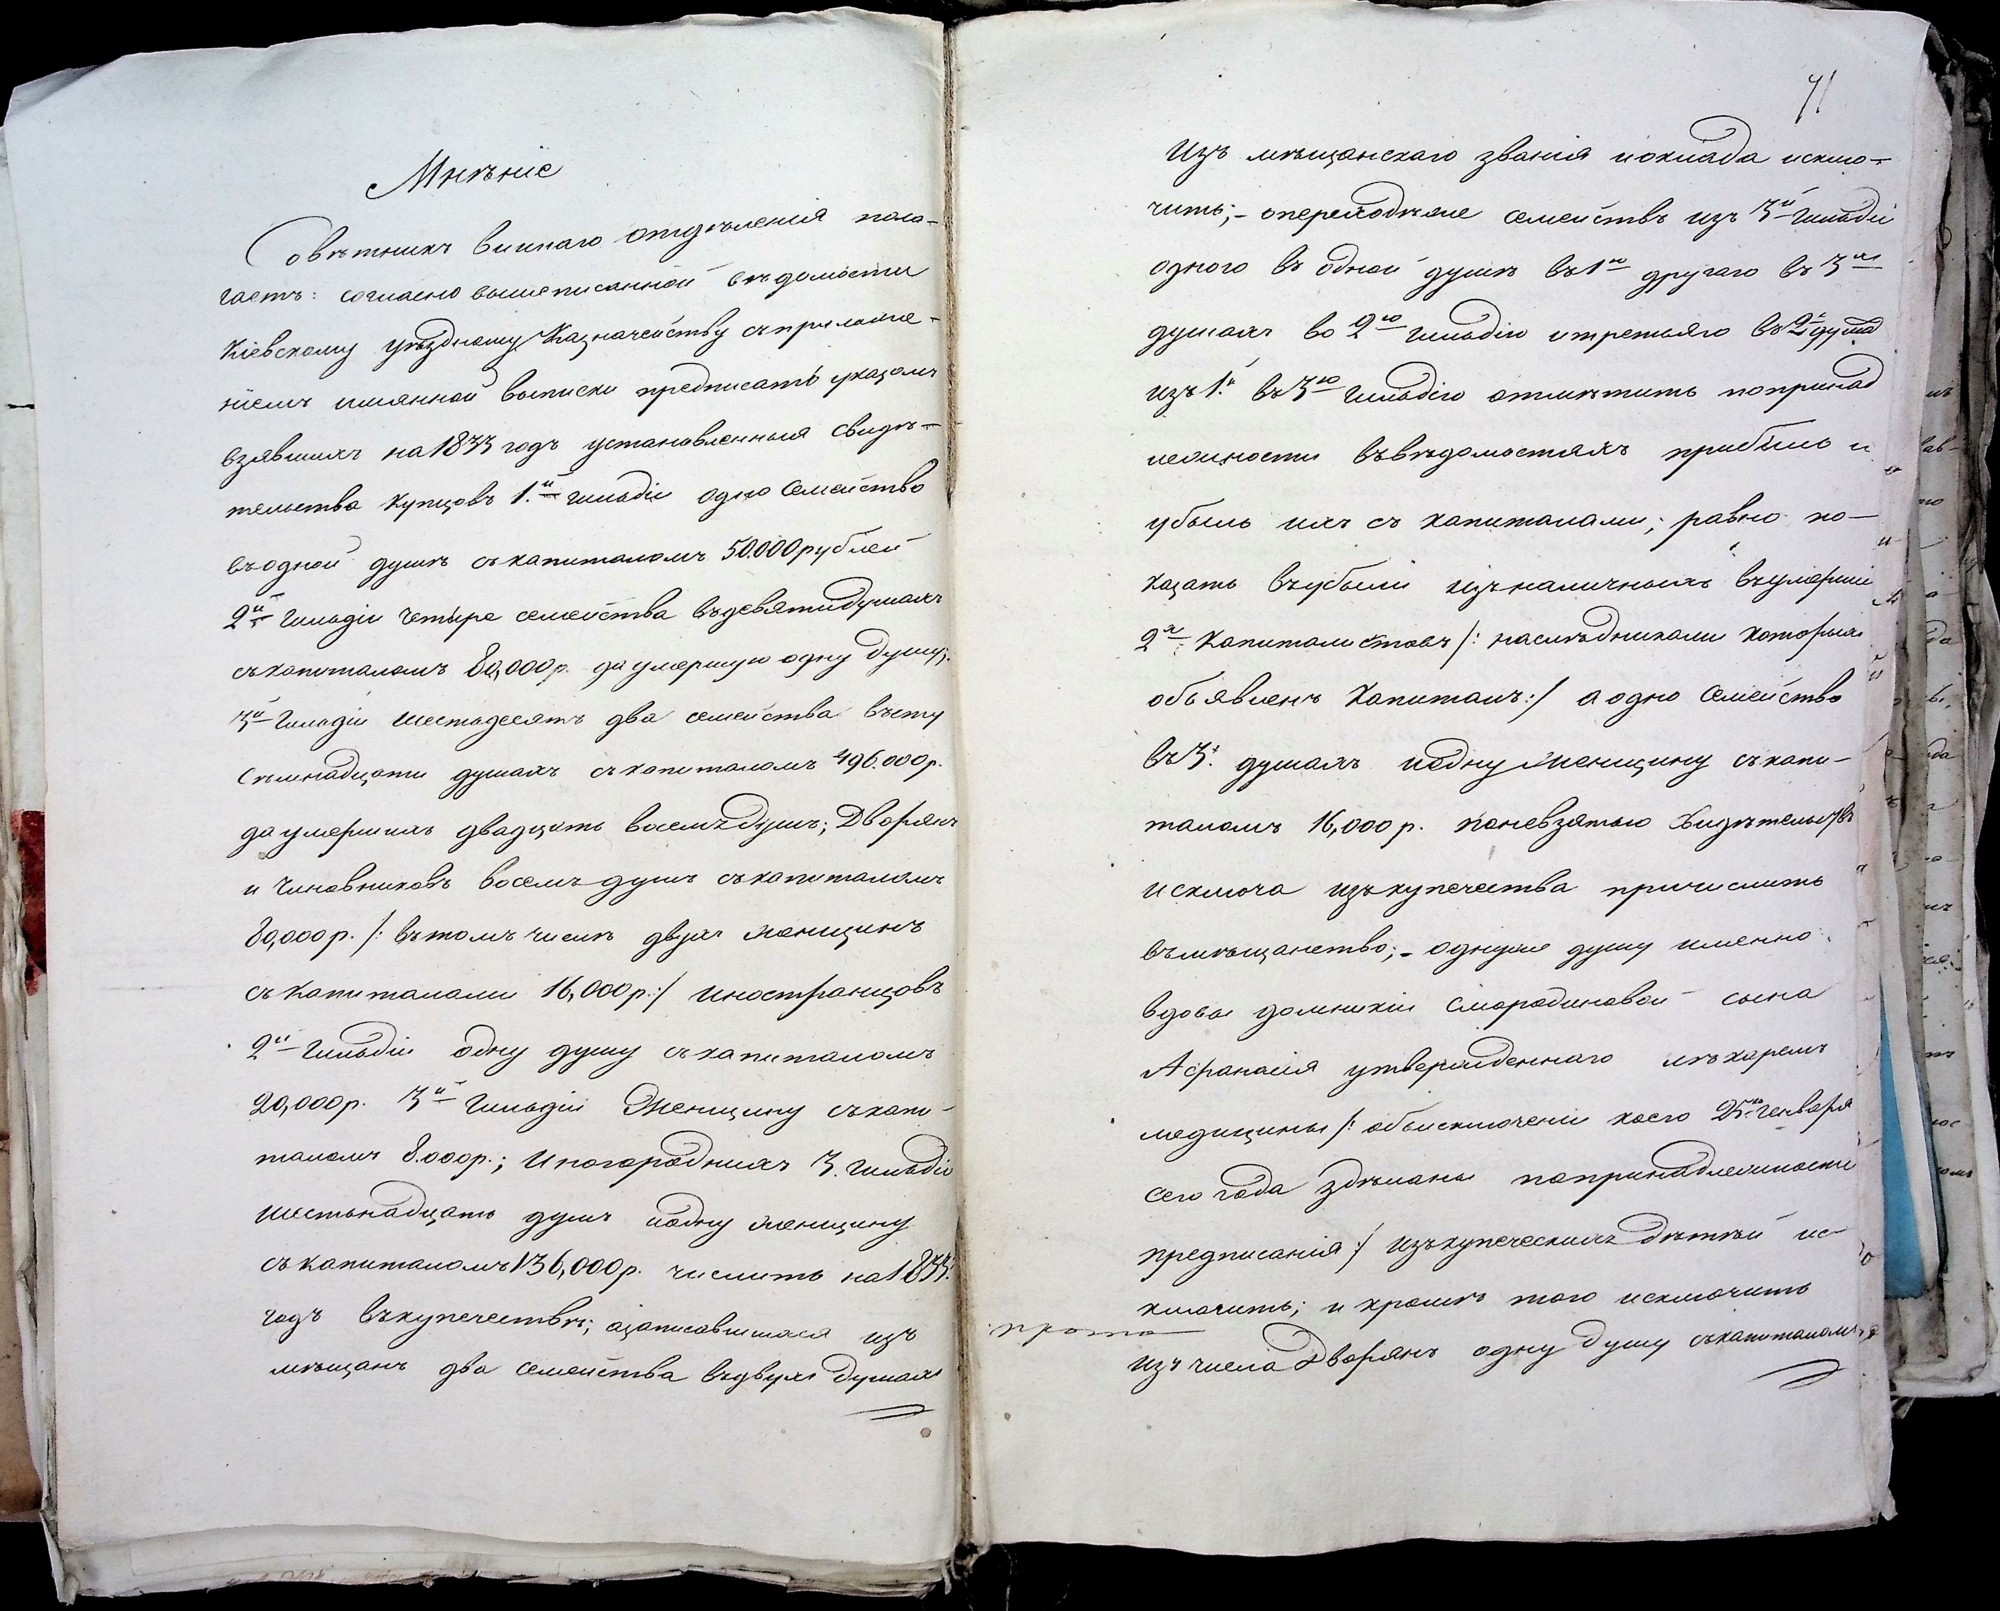 Мнѣніе
Совѣтникъ виннаго отдѣленія пола-
гаетъ: согласно вышеписанной вѣдомости
Кіевскому уѣздному Казначейству съ приложе-
ніемъ имянной выписки предписать указомъ
взявшихъ на 1833 годъ установленныя свидѣ-
тельства купцовъ 1.й гильдіи одно семейство
въ одной душѣ съ капиталомъ 50.000 рублей
2й гильдіи четыре семейства въ девяти душахъ
съ капиталомъ 80,000 р. да умершую одну душу;
3й гильдіи шестьдесятъ два семейства въ сту
семнадцати душахъ съ капиталомъ 496.000 р.
да умершихъ двадцать восемь душъ; Дворянъ
и Чиновниковъ восемь душъ съ капиталомъ
80,000 р. /: въ томъ числѣ двухъ женщинъ
съ капиталами 16,000 р:/ иностранцовъ
2й гильдіи одну душу съ капиталомъ
20,000 р. 3й гильдіи Женщину съ капи-
таломъ 8.000 р.; Иногородныхъ 3. гильдіи
шестьнадцать душъ и одну женщину
съ капиталомъ 136,000 р. числить на 1833:
годъ въ купечествѣ; а записавшихся изъ
мѣщанъ два семейства въ двухъ душахъ
71
изъ мѣщанскаго званія и оклада исклю-
чить; - о переходѣ же семействъ изъ 3й гильдіи
одного въ одной душѣ въ 1ю другаго въ 3хъ
душахъ во 2ю гильдію и третьяго въ 2х душа
изъ 1.й въ 3ю гильдію отмѣтить по принад
лежности въ вѣдомостяхъ прибыль и
убыль ихъ съ капиталами; равно по-
казать въ убыли изъ наличныхъ въ умершіи
2хъ Капиталистовъ /: наслѣдниками которыхъ
объявленъ Капиталъ:/ а одно семейство
въ 3. душахъ и одну женщину съ капи-
таломъ 16,000 р. по невзятью свидѣтельствъ
исключа изъ купечества причислить
въ мѣщанство; - одну же душу именно
вдовы Домникіи Смородиновой сына
Афанасія утвержденнаго лѣкаремъ
медицины /: объ исключеніи коего 25го Генваря
сего года здѣланы по принадлежности
предписанія :/ изъ купеческихъ дѣтей ис-
ключить; и кромѣ того исключить
изъ числа Дворянъ одну душу съ капиталомъ